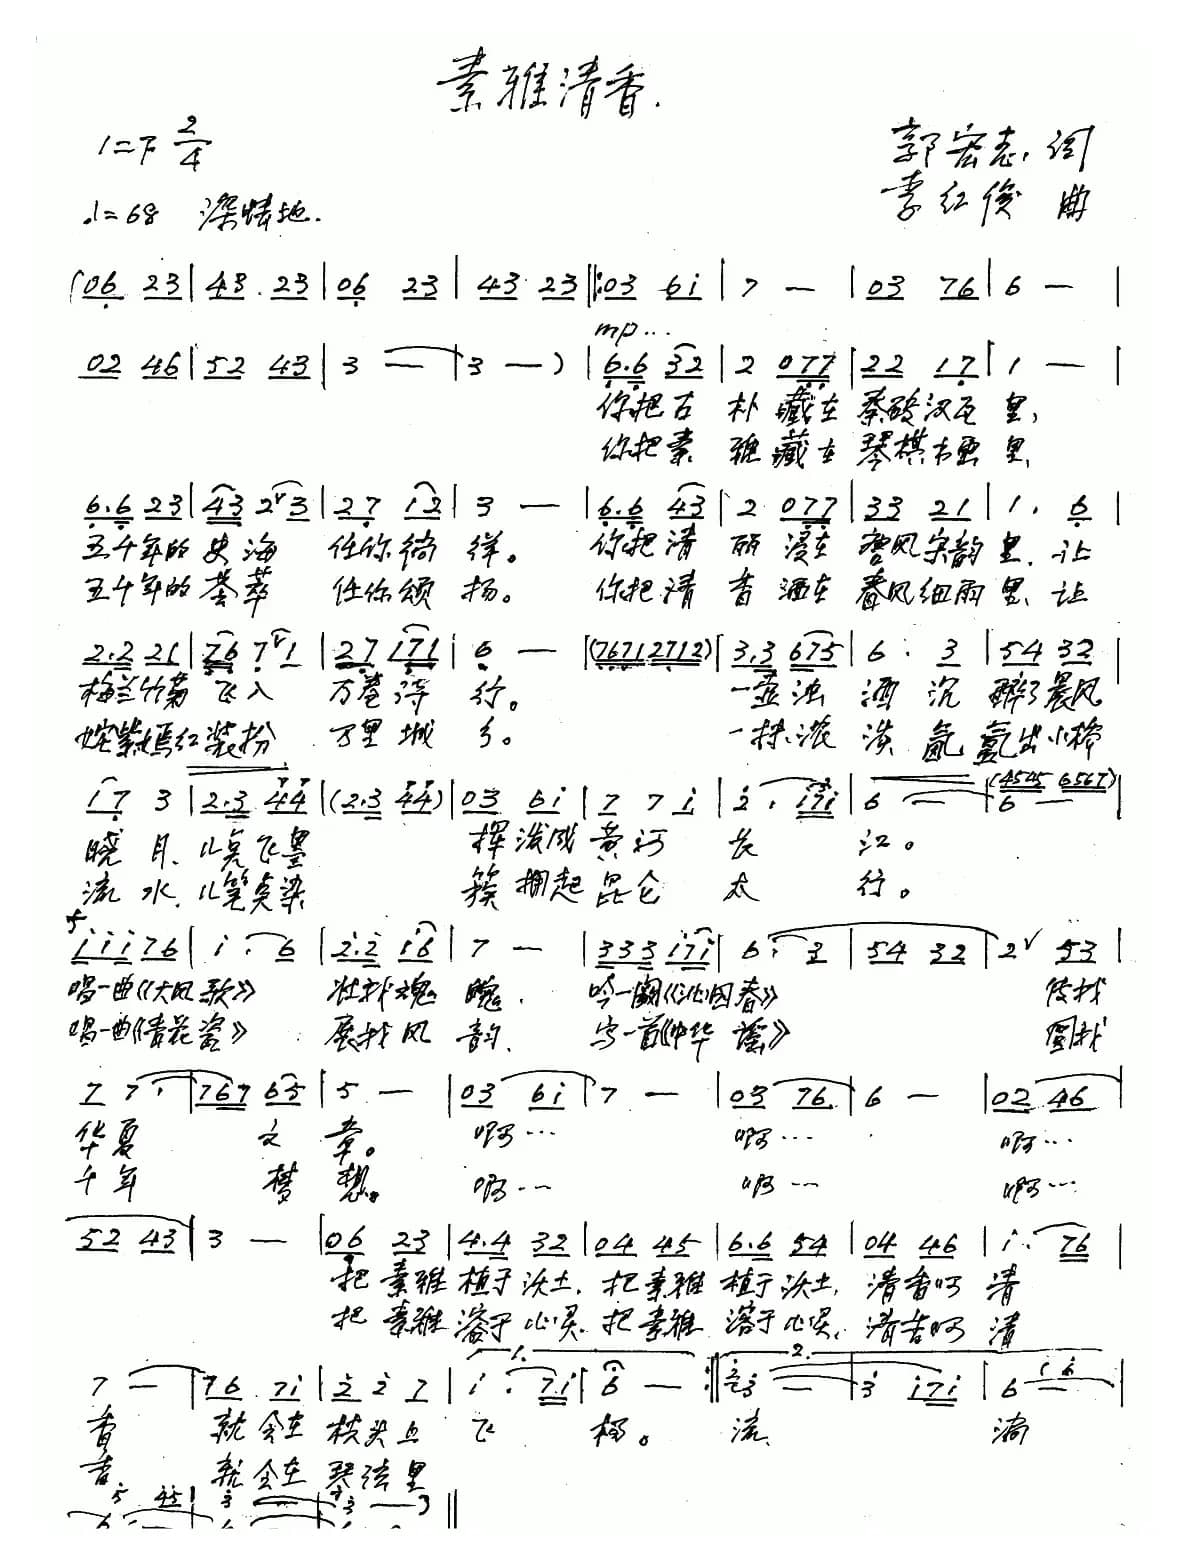 素雅清香.
1=F 2/4
郭宏志 词
♩=68 深情地.
李红俊 曲
(06 23 | 43 23 | 06 23 | 43 23 ‖: 03 6i | 7 — | 03 76 | 6 — |
mp...
02 46 | 52 43 | 3 — | 3 — ) | 6.6 32 | 2 077 | 22 17 | 1 — |
你把古 朴 藏在 秦砖汉瓦 里,
你把素 雅 藏在 琴棋书画 里,
6.6 23 | 43 2 3 | 27 12 | 3 — | 6.6 43 | 2 077 | 33 21 | 1. 6 |
五千年的 史 海 任你徜 徉。 你把清 丽 浸在 唐风宋韵 里, 让
五千年的 荟 萃 任你颂 扬。 你把清 香 洒在 春风细雨 里, 让
2.2 21 | 76 7 1 | 27 171 | 6 — | (7671 2712) | 3.3 675 | 6. 3 | 54 32 |
梅兰竹菊 飞 入 万卷诗 行。 一壶浊 酒 沉 醉了晨风
姹紫嫣红 装扮 万里城 乡。 一抹浓 氤 氲出小桥
(4545 6567)
17 3 | 2.3 44 | (2.3 44) | 03 6i | 7 7 i | 2. i7i | 6 — | 6 — |
晓 月, 几点飞墨 挥 泼成 黄河 长 江。
流 水, 几笔点染 簇 拥起 昆仑 太 行。
iii76 | i. 6 | 2.2 i6 | 7 — | 333 i7i | 6. 3 | 54 32 | 2 53 |
唱一曲《大风 歌》 壮我魂 魄, 吟一阕《沁园 春》 传我
唱一曲《青花 瓷》 展我风 韵, 写一首《中华 谣》 圆我
7 7. | 767 65 | 5 — | 03 6i | 7 — | 03 76 | 6 — | 02 46 |
华 夏 文 章。 啊… 啊… 啊…
千 年 梦 想。 啊… 啊… 啊…
52 43 | 3 — | 06 23 | 4.4 32 | 04 45 | 6.6 54 | 04 46 | i. 76 |
把 素雅 植于沃土, 把素雅 植于沃土, 清香啊 清
把 素雅 溶于心灵, 把素雅 溶于心灵, 清香啊 清
1. 2.
7 — | 76 7i | 2 2 7 | i. 7i | 6 — :‖ 3 — | 3 i7i | 6 — |
香 就 会在 枝头上 飞 扬。 流 淌
香 就 会在 琴弦里